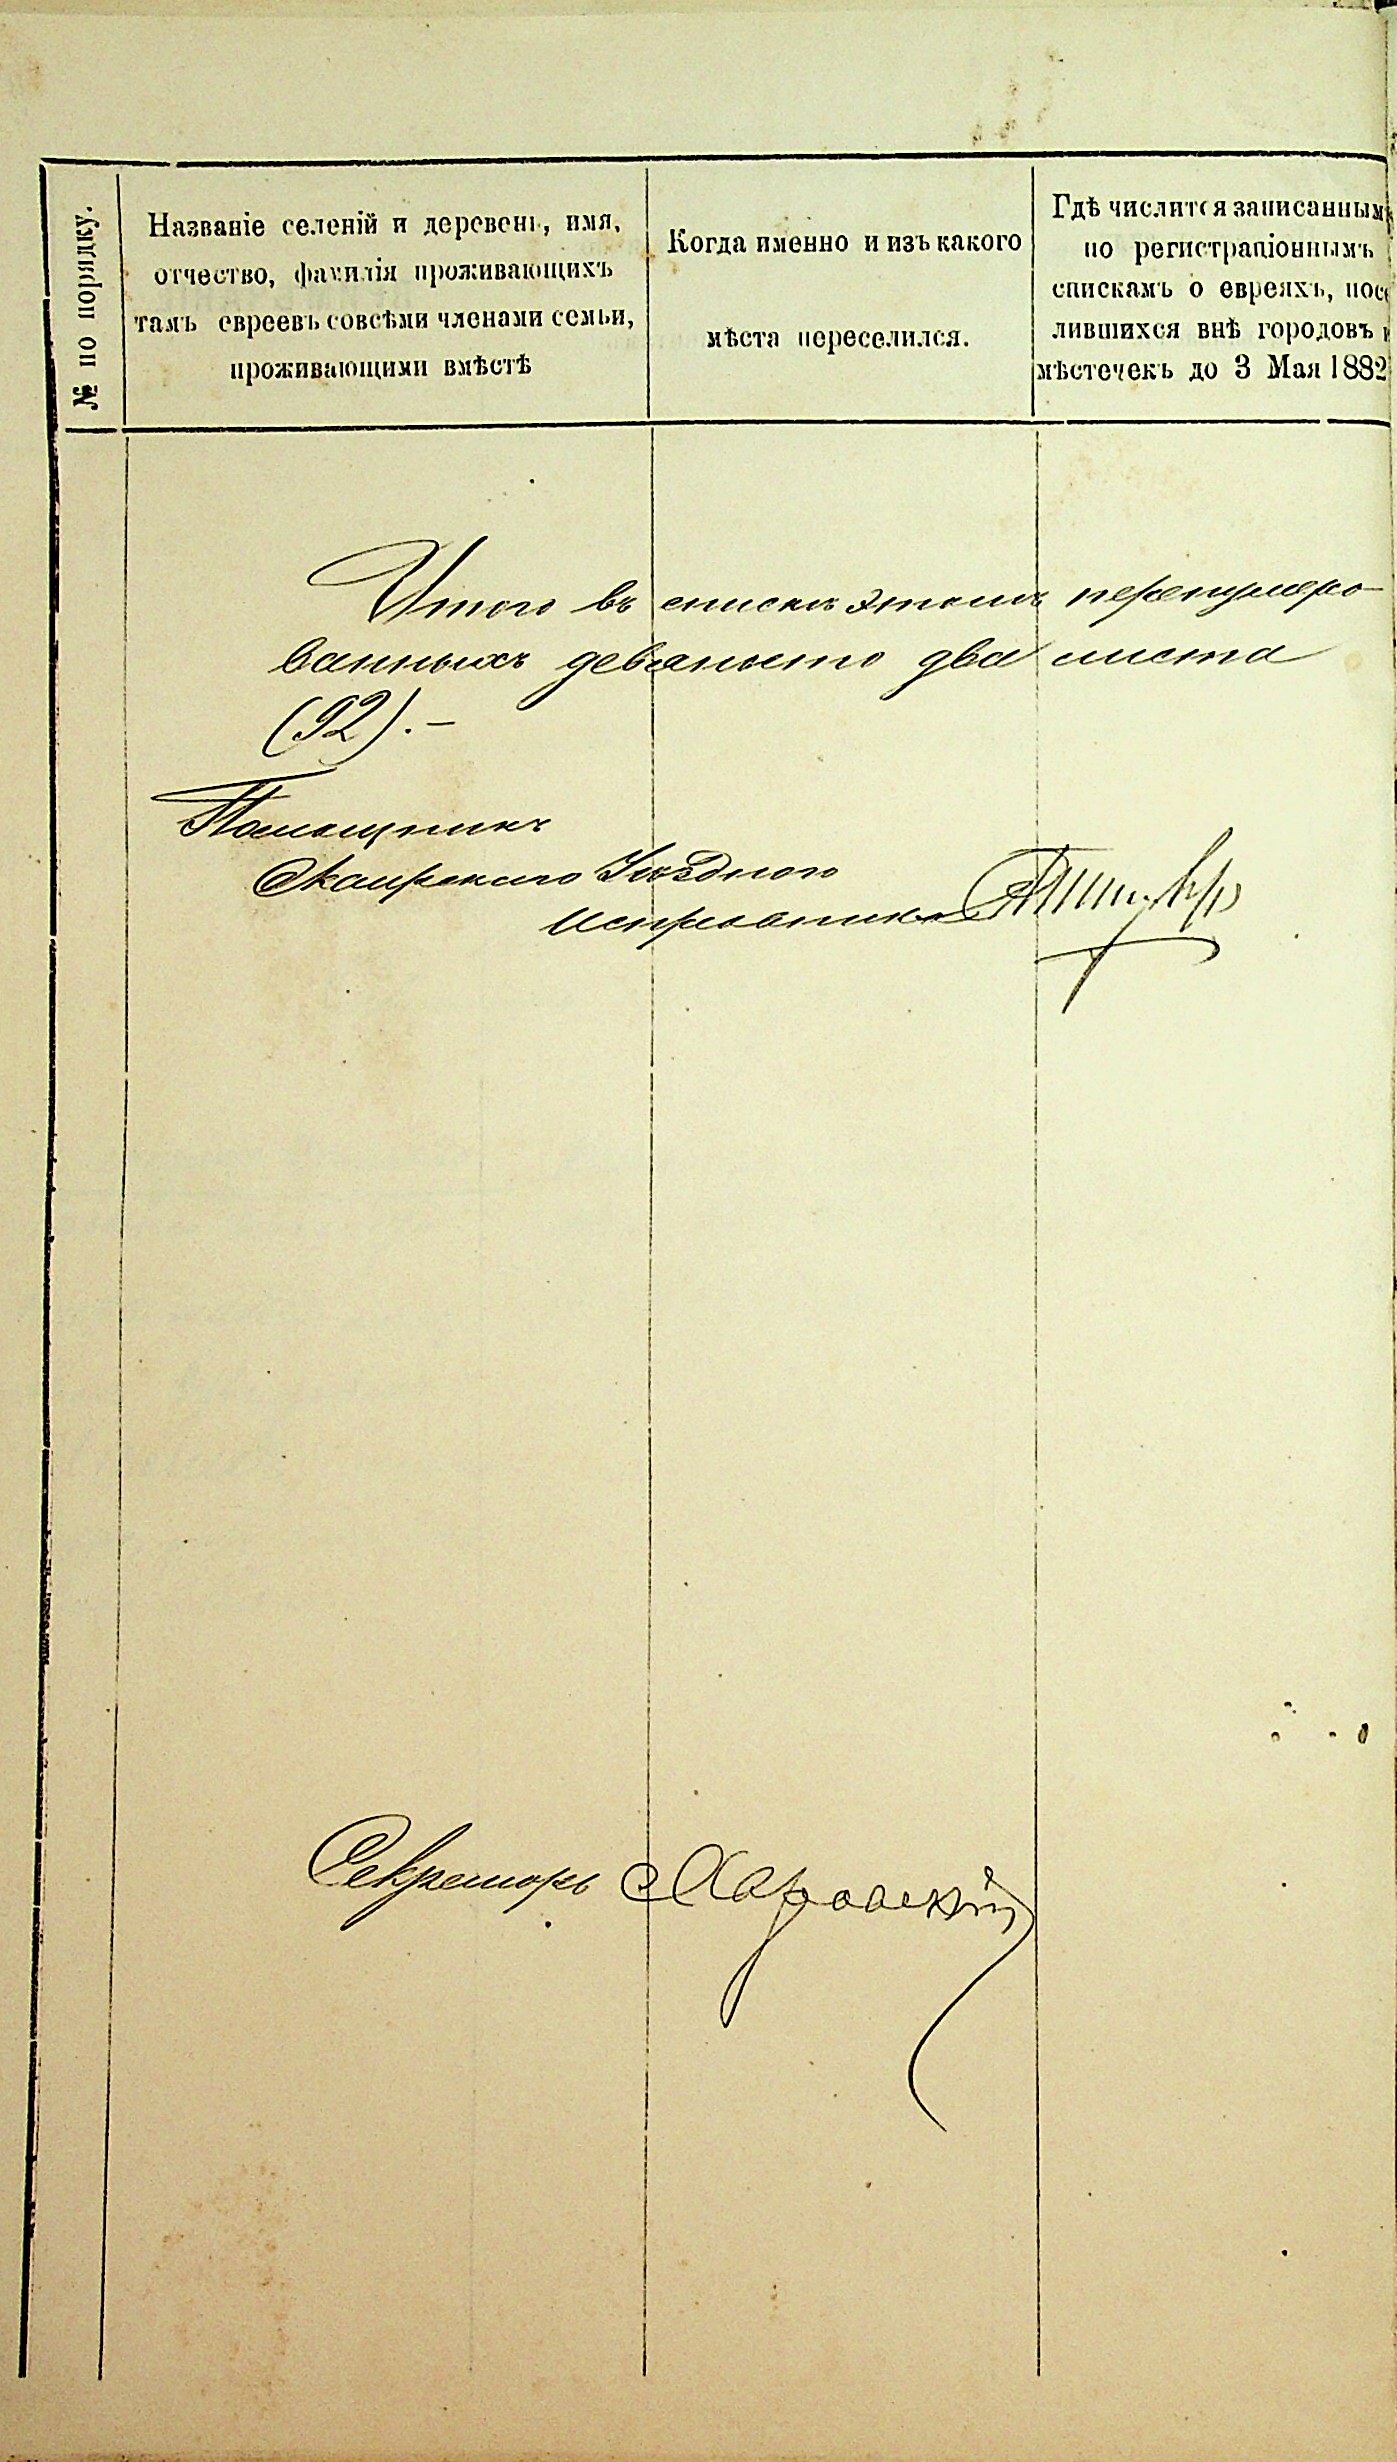 № по порядку.
Названіе селеній и деревень, имя,
отчество, фамилія проживающихъ
тамъ евреевъ совсѣми членами семьи,
проживающими вмѣстѣ
Когда именно и изъ какого
мѣста переселился.
Гдѣ числится записаннымъ
по регистраціоннымъ
спискамъ о евреяхъ, посе
лившихся внѣ городовъ и
мѣстечекъ до 3 Мая 1882
Итого въ спискѣ этомъ перенумеро-
ванныхъ девяносто два листа
(92).-
Помощникъ
Сквирскаго Уѣзднаго
Исправника
Секретарь